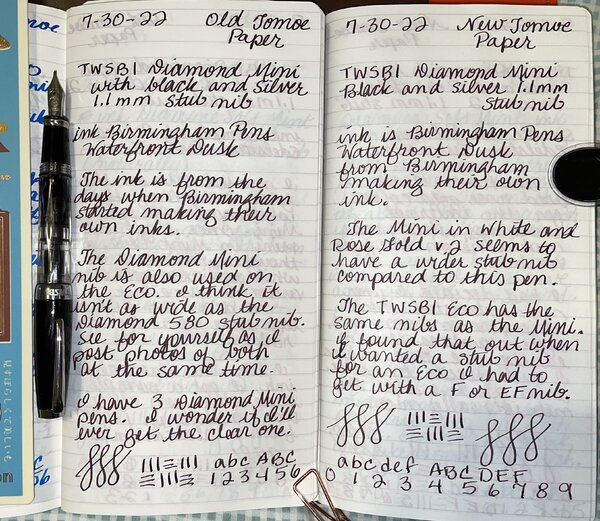 7-30-22 Old Tomoe
Paper
TWSBI Diamond Mini
with black and silver
1.1mm stub nib
ink Birmingham Pens
Waterfront Dusk
The ink is from the
days when Birmingham
started making their
own inks.
The Diamond Mini
nib is also used on
the ECO. I think it
isn't as wide as the
Diamond 580 stub nib.
See for yourself as I
post photos of both
at the same time.
I have 3 Diamond Mini
pens. I wonder if I'll
ever get the clear one.
abc ABC
1 2 3 4 5 6
7-30-22 New Tomoe
Paper
TWSBI Diamond Mini
Black and silver 1.1mm
stub nib
ink is Birmingham Pens
Waterfront Dusk
from Birmingham
making their own
ink.
The Mini in White and
Rose Gold v 2 seems to
have a wider stub nib
compared to this pen.
The TWSBI Eco has the
same nibs as the Mini.
I found that out when
I wanted a stub nib
for an Eco I had to
get with a F or EF nib.
abcdef ABCDEF
0 1 2 3 4 5 6 7 8 9